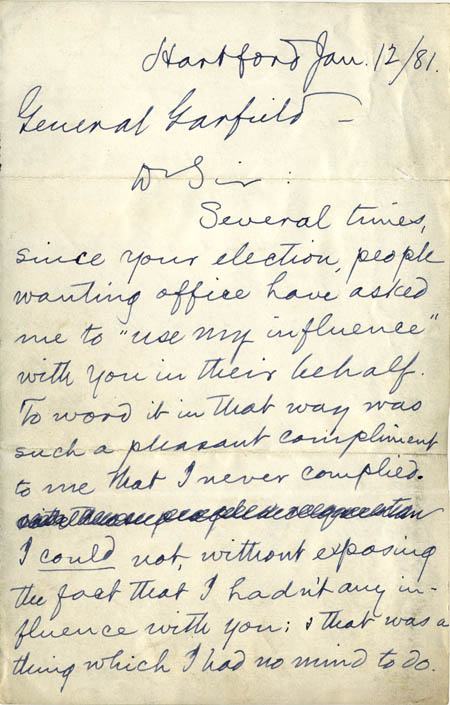 Hartford Jan. 12/81.
General Garfield —
Dr Sir:
Several times,
since your election, people
wanting office have asked
me to "use my influence"
with you in their behalf.
To word it in that way was
such a pleasant compliment
to me that I never complied.
I could not, without exposing
the fact that I hadn't any in-
fluence with you; & that was a
thing which I had no mind to do.